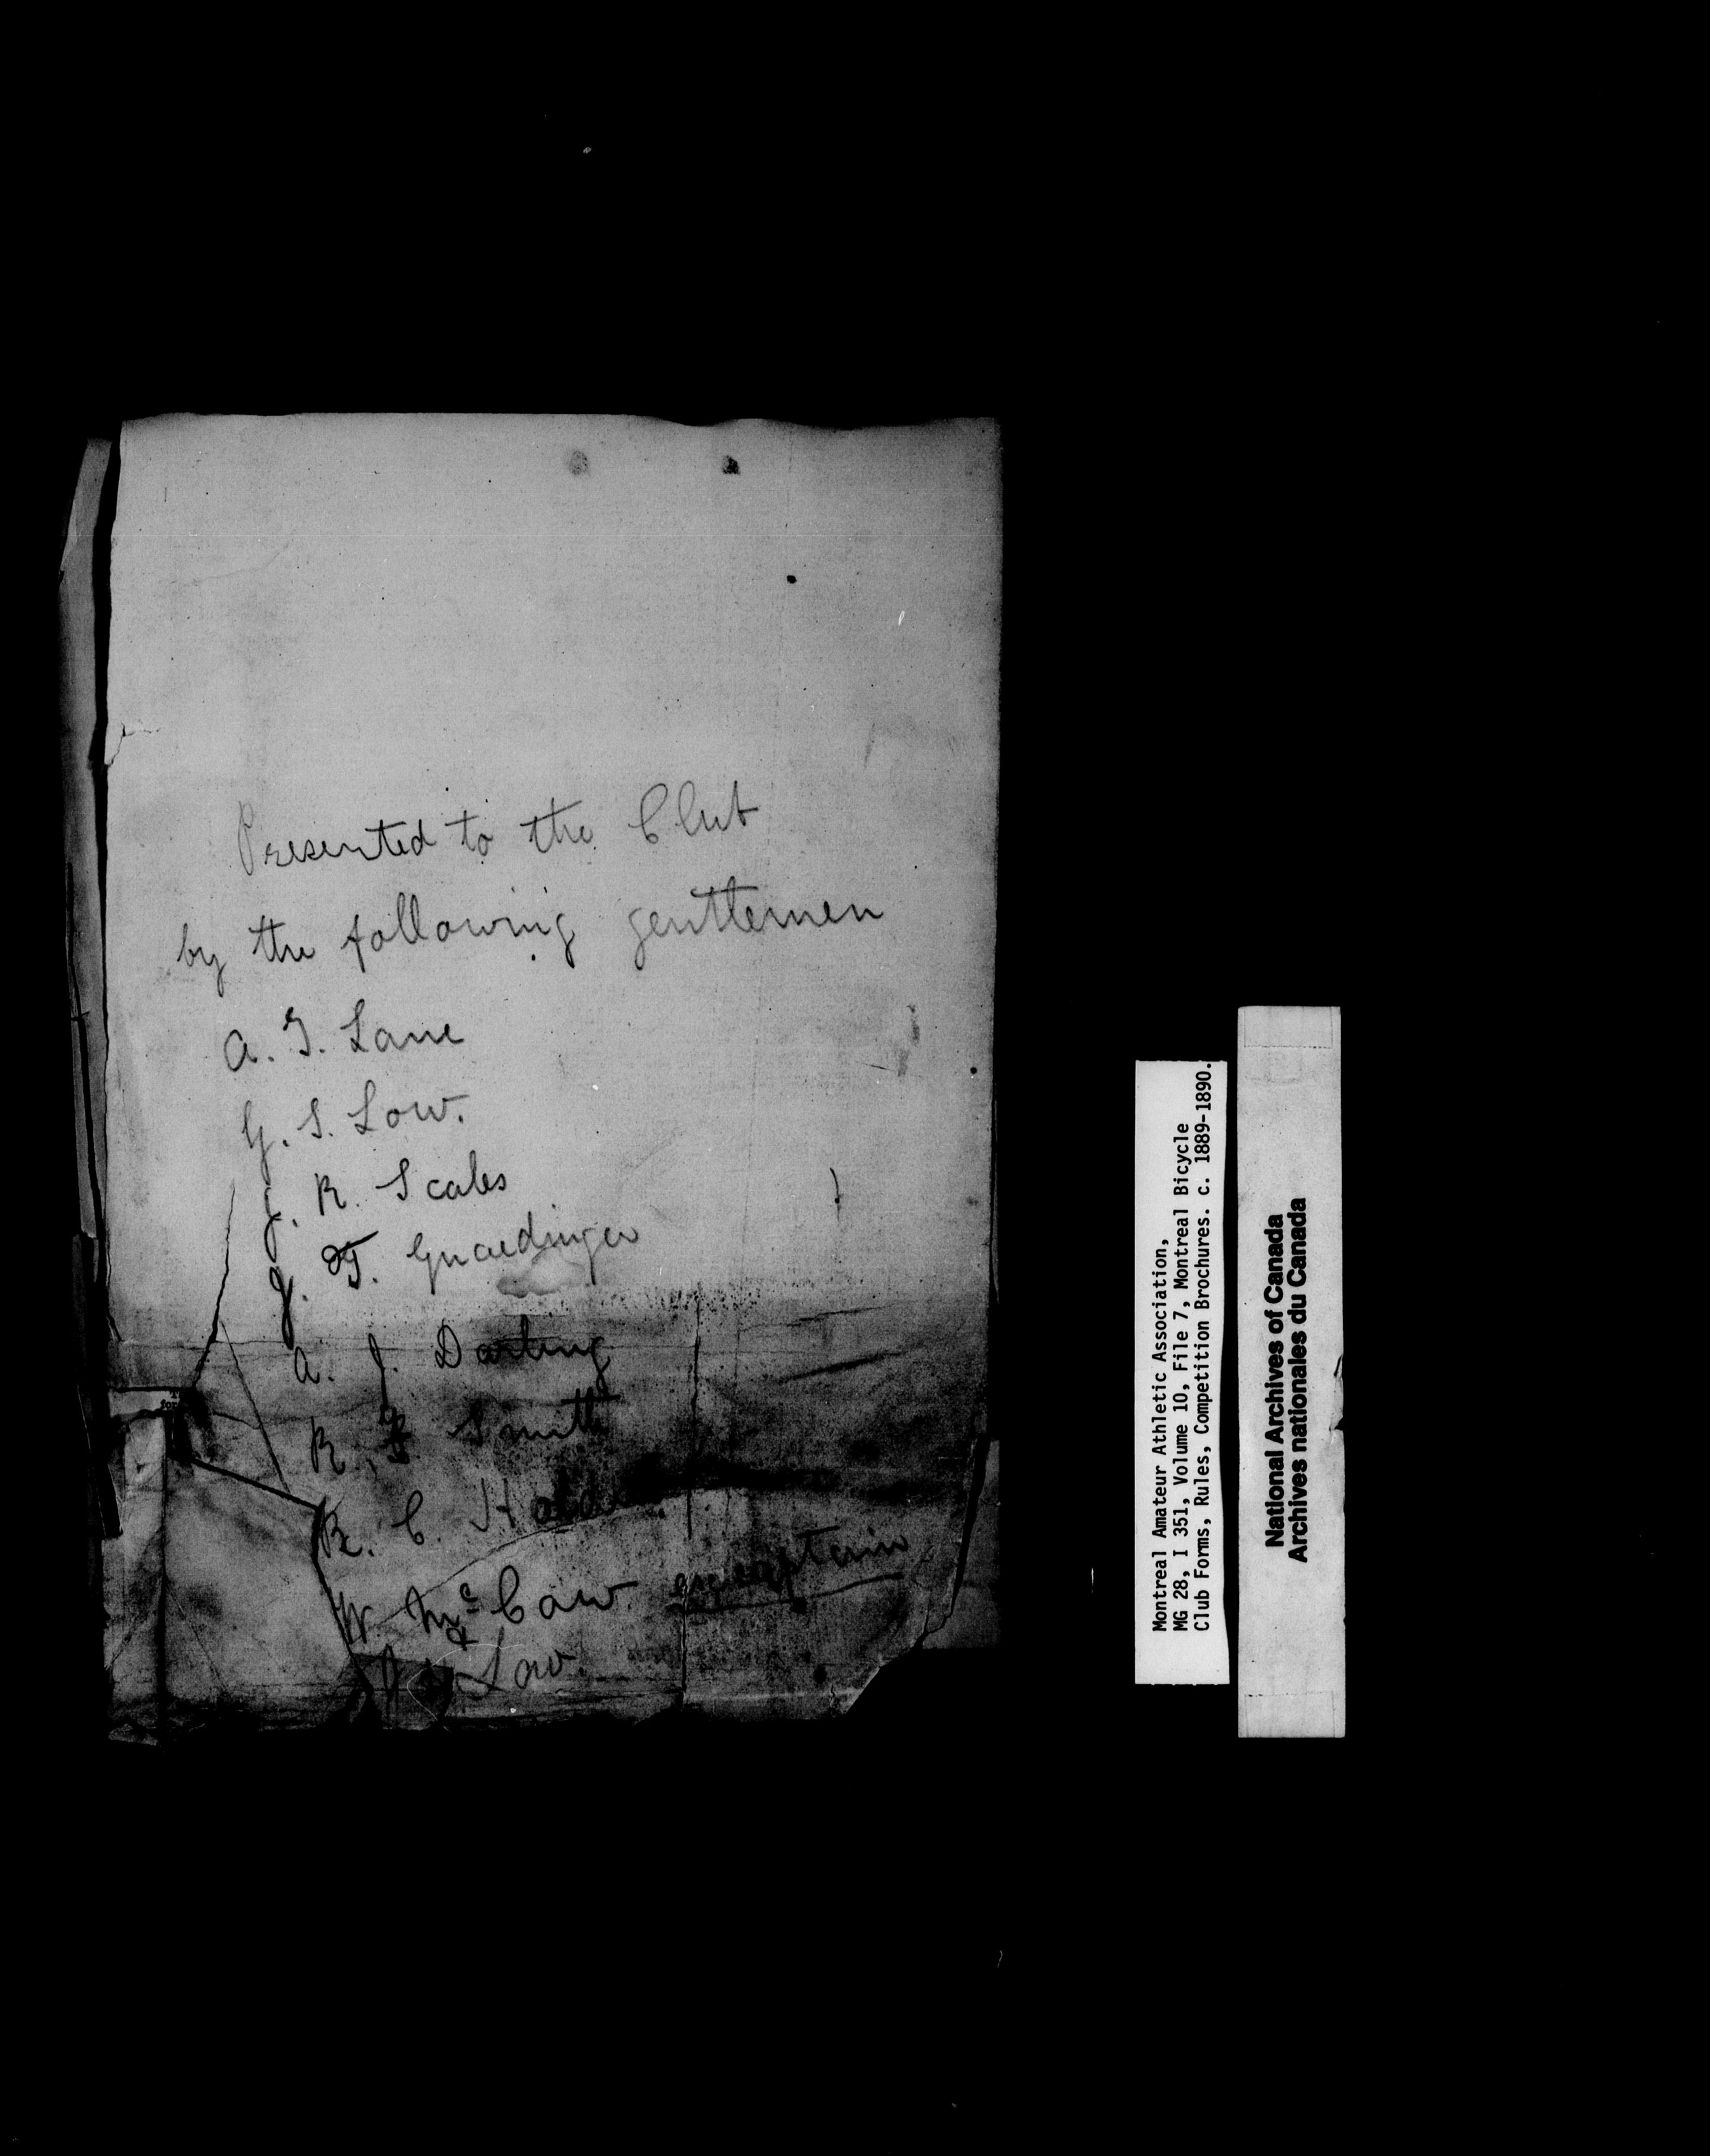 Presented to the Club
by the following gentlemen
A. T. Lane
G. S. Low.
J. R. Scales
J. T. Gnaedinger
A. J. Darling
R. F. Smith
R. C. Holden
W. McCaw.
Low.
Montreal Amateur Athletic Association,
MG 28, I 351, Volume 10, File 7, Montreal Bicycle
Club Forms, Rules, Competition Brochures. C. 1889-1890.
National Archives of Canada
Archives nationales du Canada